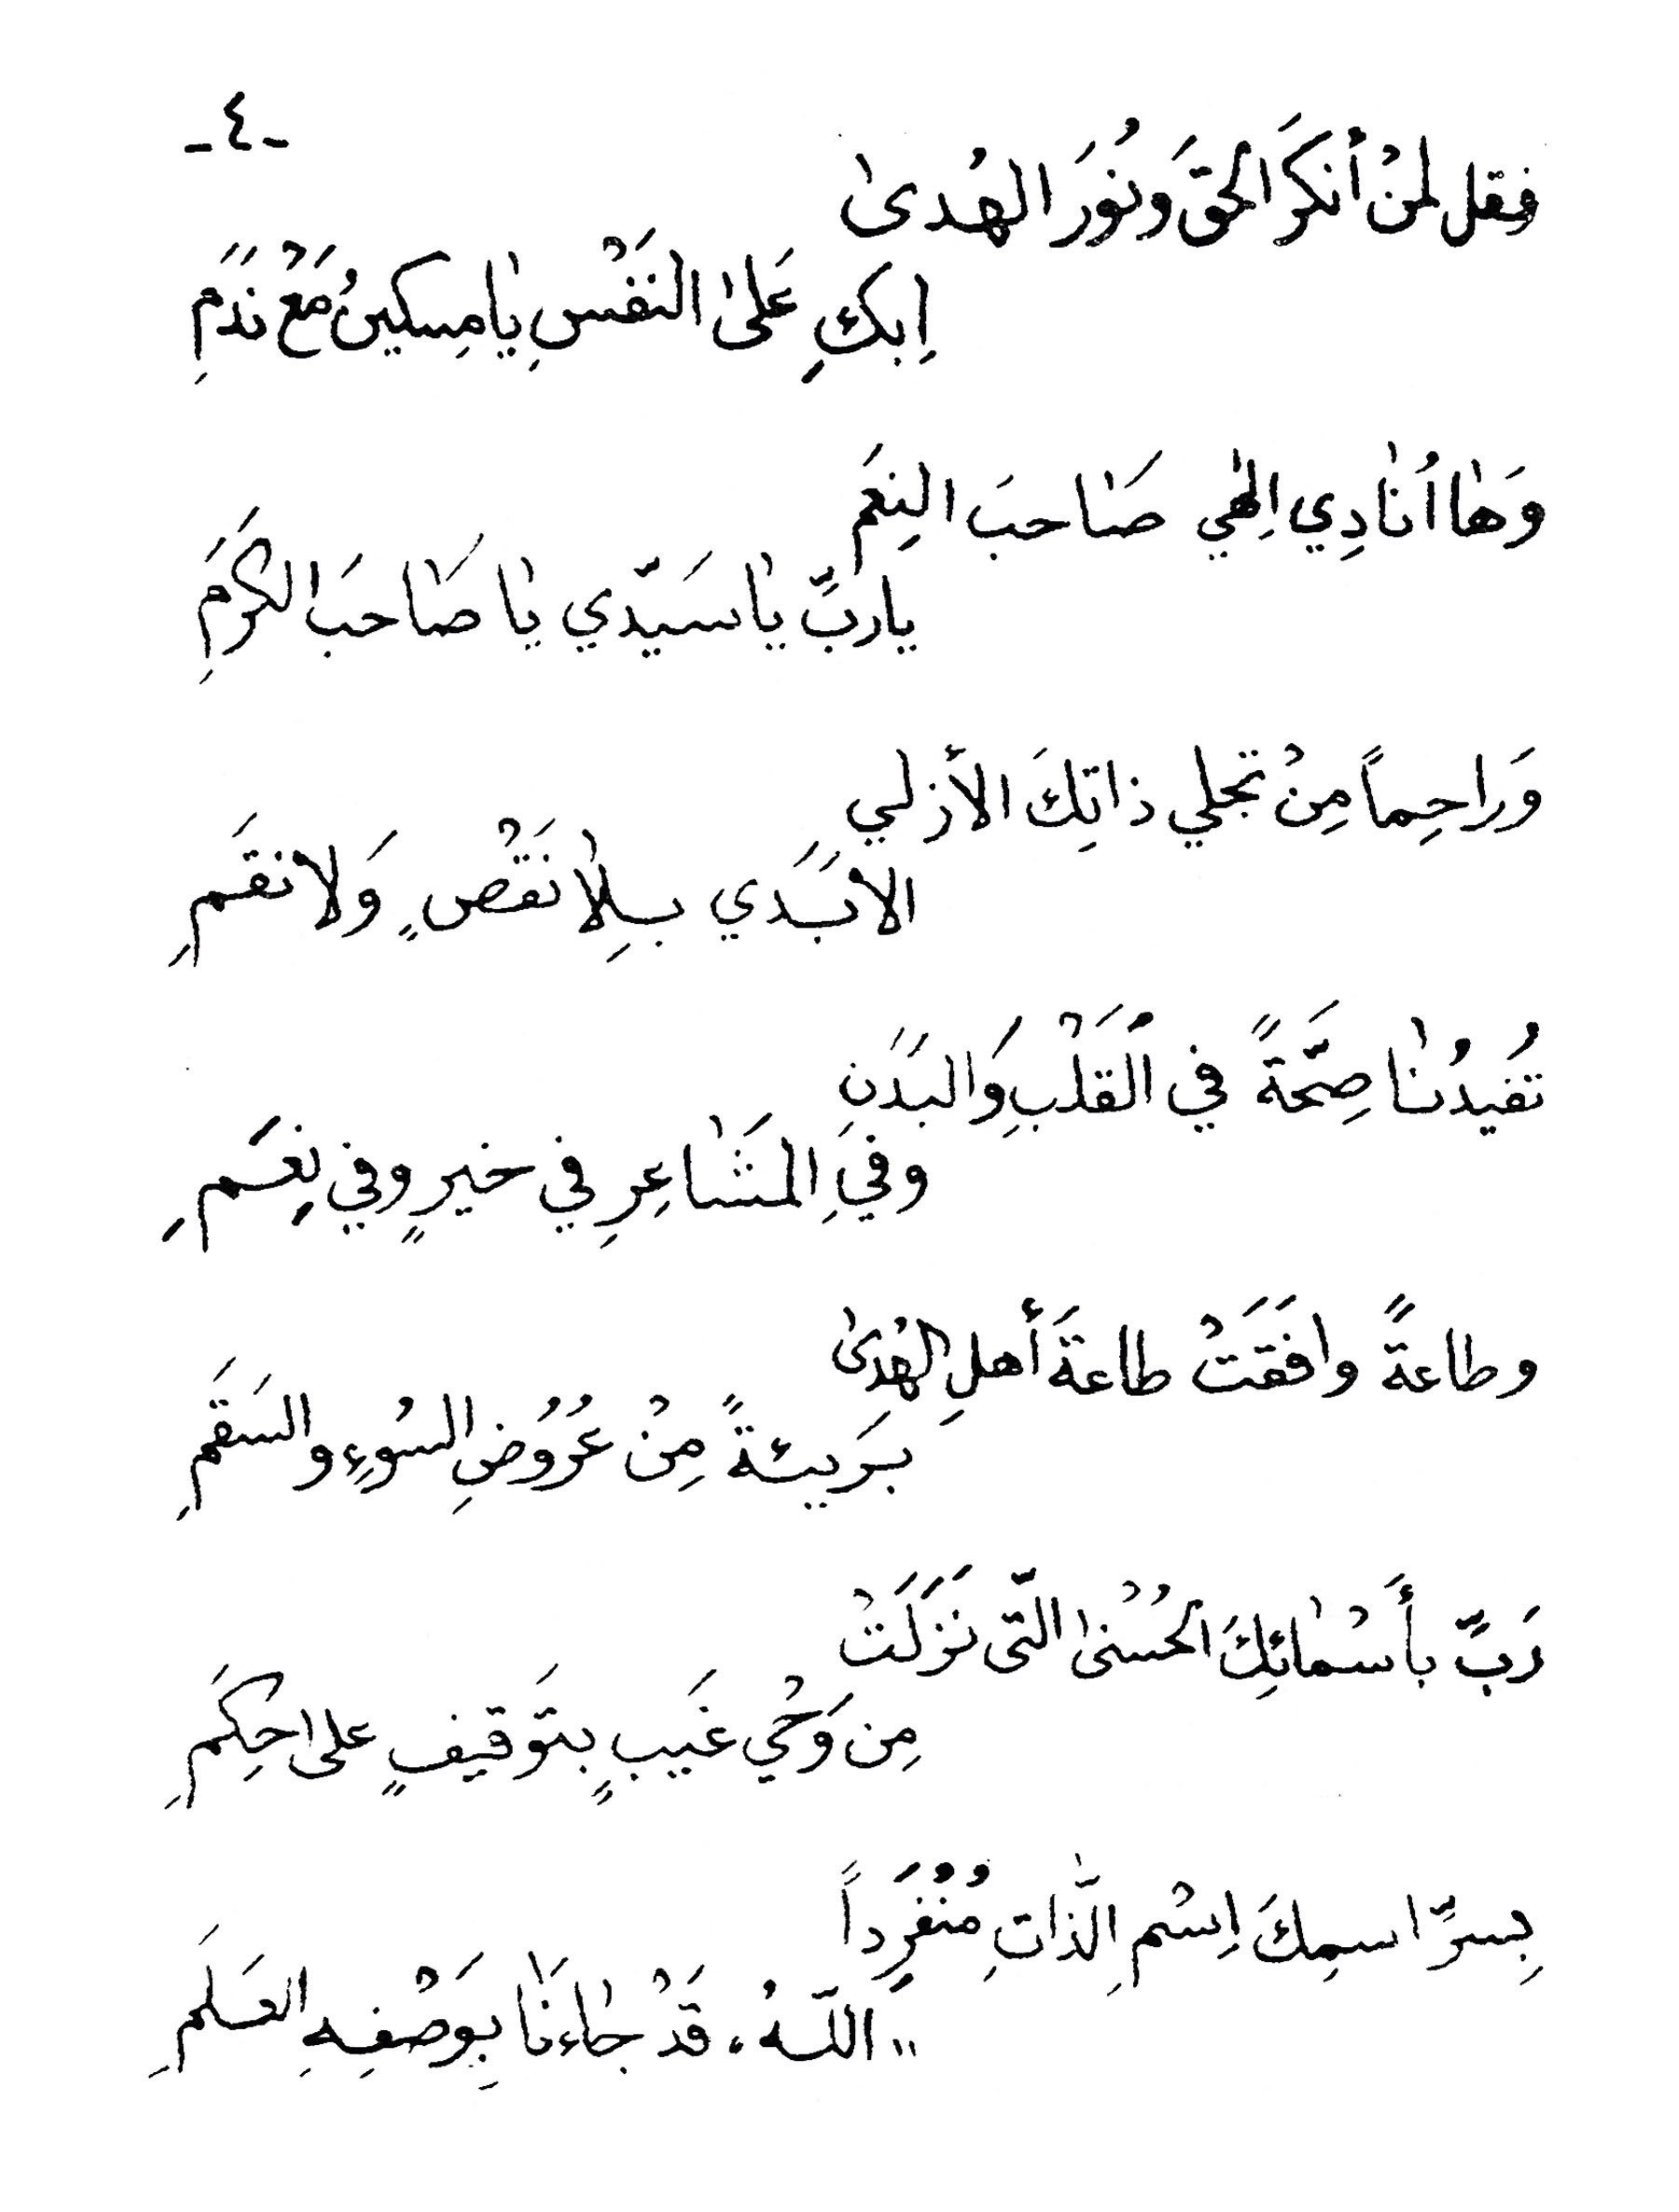 -٤-
فقل لمنْ أنكرَ الحقَ ونُورَ الهُدىٰ
اِبكِ عَلىٰ النَفْسِ يٰا مِسكينُ مَعْ نَدَمِ
وَهٰا اُنٰادِي اِلٰهي صَاحبَ النِعَم
ياربَّ يٰا سَيّدي يٰا صَاحبَ الكَرَمِ
وَراحِماً مِنْ تجلي ذاتِكَ الأزلي
الابَدَي بِلاٰ نَقْصٍ وَلا نقَمِ
تُفيدُنٰا صِحَّةً في القَلْبِ وَالبَدَنِ
وفي المَشٰاعِرِ في خيرٍ وفي نِعَمِ
وطاعةً وافقَتْ طاعةَ أهلِ الهُدىٰ
بَريئةً مِنْ عُرُوضِ السُوءِ والسَقَمِ
رَبِّ بأَسْمٰائِكَ الحُسْنىٰ التّى نَزَلَتْ
مِن وَحْيِ غَيبٍ بتَوقيفٍ على حِكَمِ
بِسرِّ اسمِكَ اِسْمِ الذّٰاتِ مُنْفَرِداً
"اللّهُ، قَدْ جٰاءنَا بِوَصْفِهِ العَلَمِ